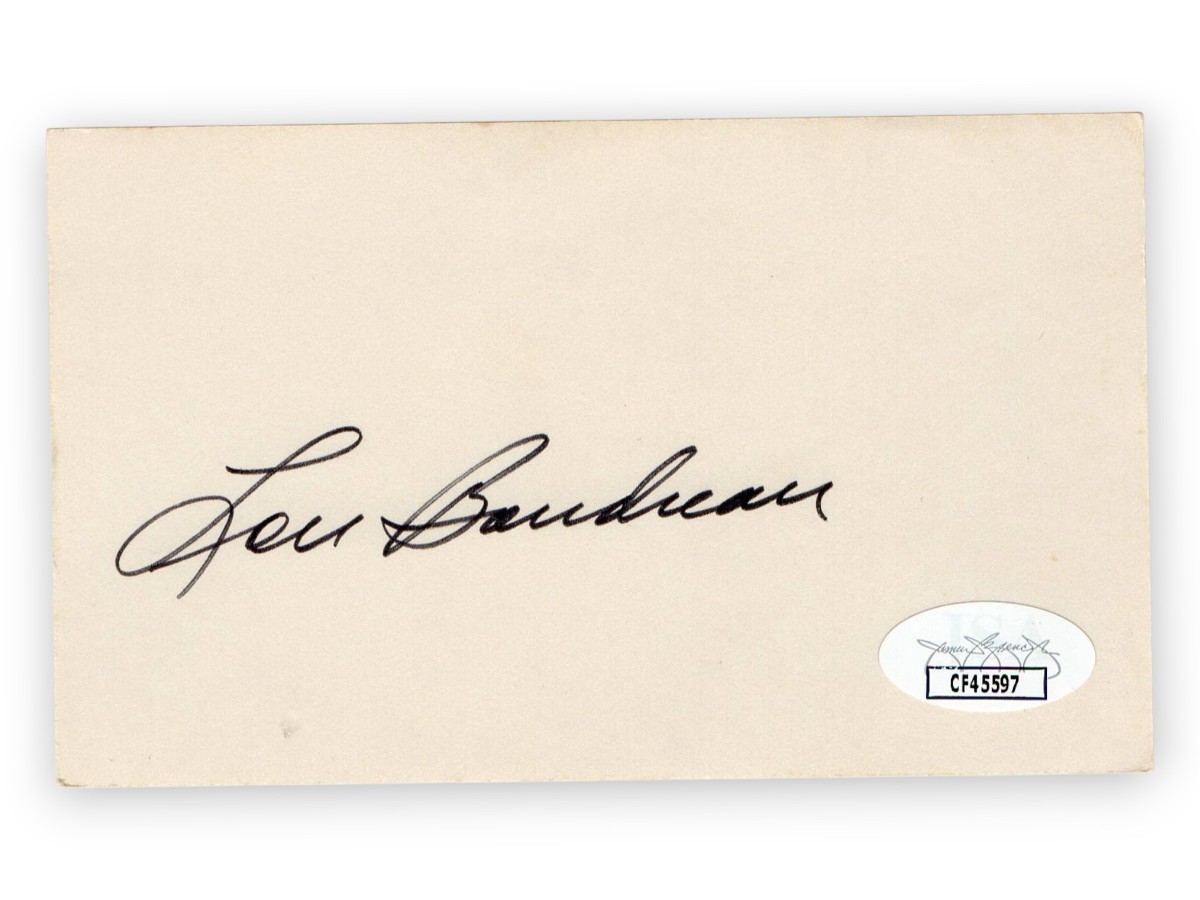 Lou Boudreau
JSA
James Spence
CF45597